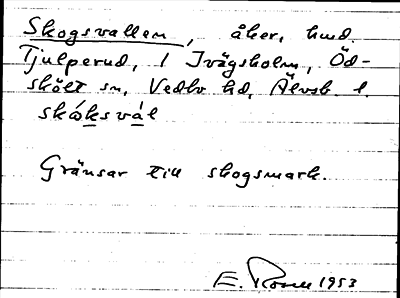 Skogsvallen, åker, hmd.
Tjulperud, 1 Ivägsholm, Öd-
skölt sn, Vedbo hd, Älvsb. l.
skóksvál
Gränsar till skogsmark.
E. 1953